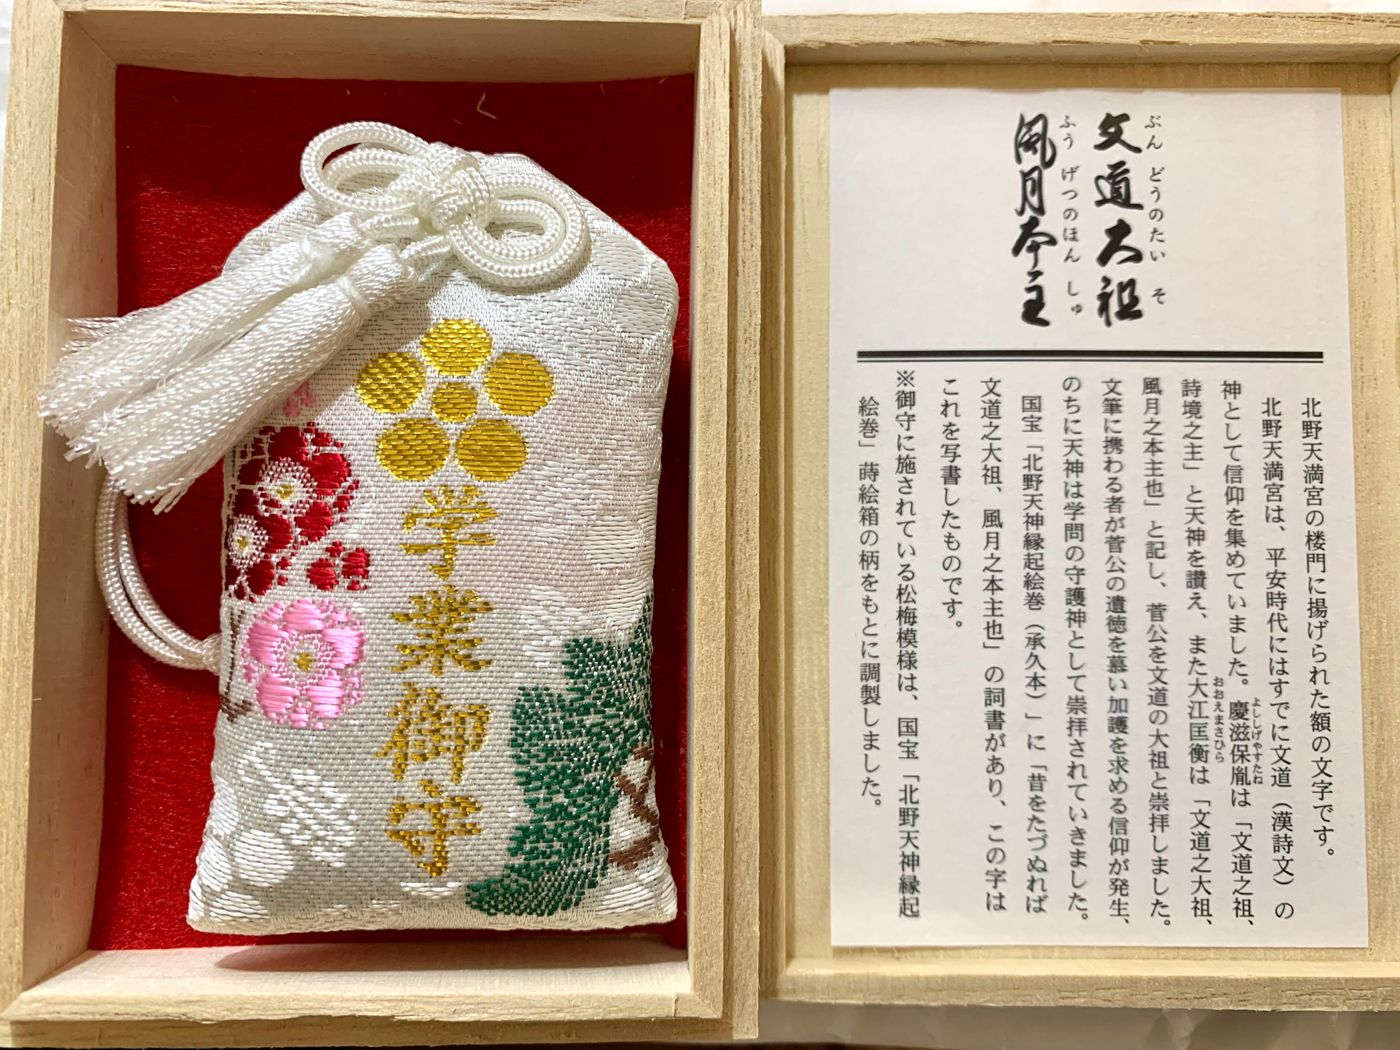 学業御守
文道大祖
ぶんどうのたいそ
風月本主
ふうげつのほんしゅ
北野天満宮の楼門に揚げられた額の文字です。
北野天満宮は、平安時代にはすでに文道（漢詩文）の
神として信仰を集めていました。慶滋保胤は「文道之祖、
よししげやすたね
詩境之主」と天神を讃え、また大江匡衡は「文道之大祖、
おおえまさひら
風月之本主也」と記し、菅公を文道の大祖と崇拝しました。
文筆に携わる者が菅公の遺徳を慕い加護を求める信仰が発生、
のちに天神は学問の守護神として崇拝されていきました。
国宝「北野天神縁起絵巻（承久本）」に「昔をたづぬれば
文道之大祖、風月之本主也」の詞書があり、この字は
これを写書したものです。
※御守に施されている松梅模様は、国宝「北野天神縁起
絵巻」蒔絵箱の柄をもとに調製しました。